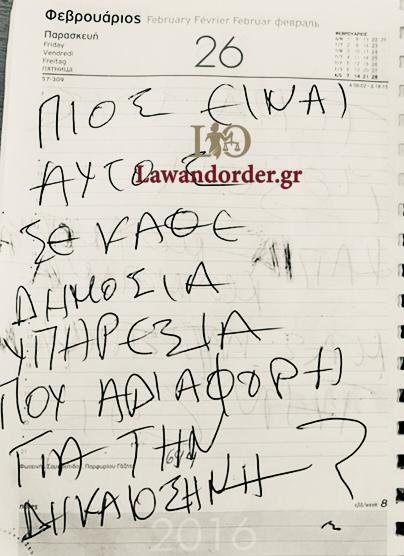 Φεβρουάριος February Février Februar февраль
Παρασκευή
Friday
Vendredi
Freitag
пятница
57-309
26
ΦΕΒΡΟΥΑΡΙΟΣ
ΠΙΟΣ ΕΙΝΑΙ
LO
Lawandorder.gr
ΑΥΤΟΣ
ΣΕ ΚΑΘΕ
ΔΗΜΟΣΙΑ
ΥΠΗΡΕΣΙΑ
ΠΟΥ ΑΔΙΑΦΟΡΗ
ΓΙΑ ΤΗΝ
ΔΗΚΑΙΟΣΗΝΗ ?
εβδ/week 8
2016